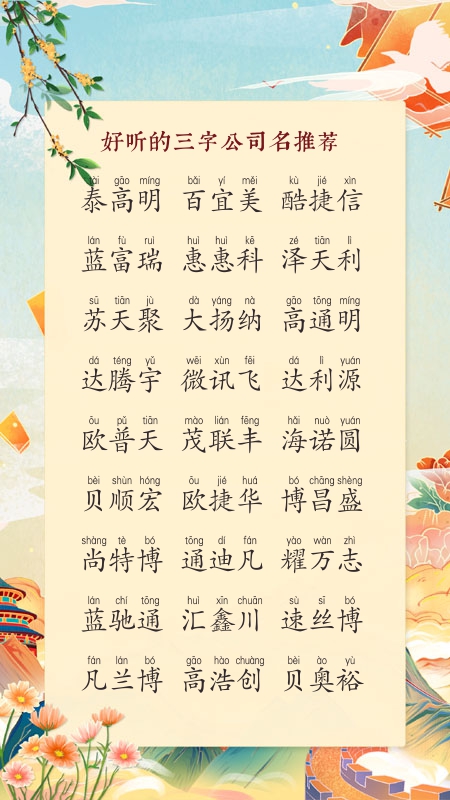 好听的三字公司名推荐
tài gāo míng bǎi yí měi kù jié xìn
泰高明 百宜美 酷捷信
lán fù ruì huì huì kē zé tiān lì
蓝富瑞 惠惠科 泽天利
sū tiān jù dà yáng nà gāo tōng míng
苏天聚 大扬纳 高通明
dá téng yǔ wēi xùn fēi dá lì yuán
达腾宇 微讯飞 达利源
ōu pǔ tiān mào lián fēng hǎi nuò yuán
欧普天 茂联丰 海诺圆
bèi shùn hóng ōu jié huá bó chāng shèng
贝顺宏 欧捷华 博昌盛
shàng tè bó tōng dí fán yào wàn zhì
尚特博 通迪凡 耀万志
lán chí tōng huì xīn chuān sù sī bó
蓝驰通 汇鑫川 速丝博
fán lán bó gāo hào chuàng bèi ào yù
凡兰博 高浩创 贝奥裕